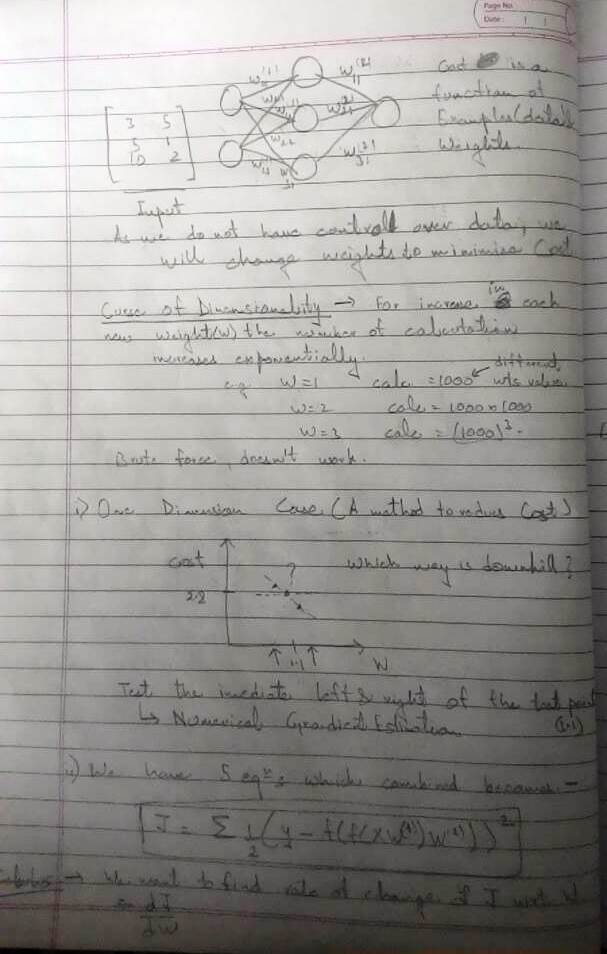 Page No.
Date:
Cost is a
function of
Examples (data)
Weights.
W11(2)
W21(2)
W31(2)
3 5
5 1
10 2
Input
As we do not have controll over data, we
will change weights to minimise Cost
Curse of Dimensionality → For increase in each
new weight(w) the number of calculation
increases exponentially.
different
e.g. W=1 calc = 1000 wts values
W=2 calc = 1000 × 1000
W=3 calc = (1000)³.
Brute force, doesn't work.
i) One Dimension Case (A method to reduce Cost)
Cost
?
which way is downhill?
2.8
1.1
W
Test the imediate left & right of the test point
(1.1)
↳ Numerical Gradient Estimation
ii) We have 5 eqns which combined becomes -
J = Σ 1/2 (y - f(f(XW(1))W(2)))²
→ We want to find rate of change of J wrt W
dJ
dW